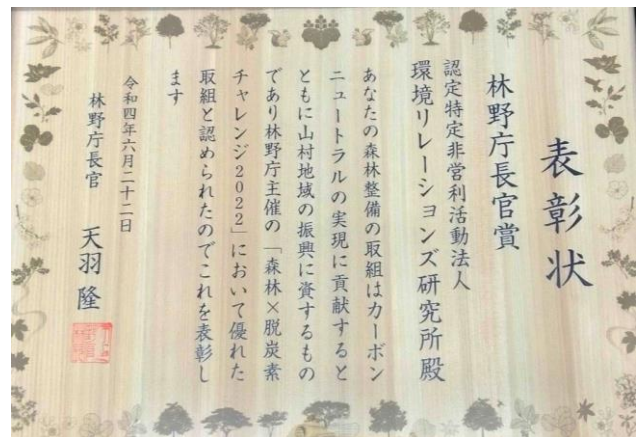 表彰状
林野庁長官賞
認定特定非営利活動法人
環境リレーションズ研究所殿
あなたの森林整備の取組はカーボン
ニュートラルの実現に貢献すると
ともに山村地域の振興に資するもの
であり林野庁主催の「森林×脱炭素
チャレンジ2022」において優れた
取組と認められたのでこれを表彰し
ます
令和四年六月二十二日
林野庁長官 天羽隆